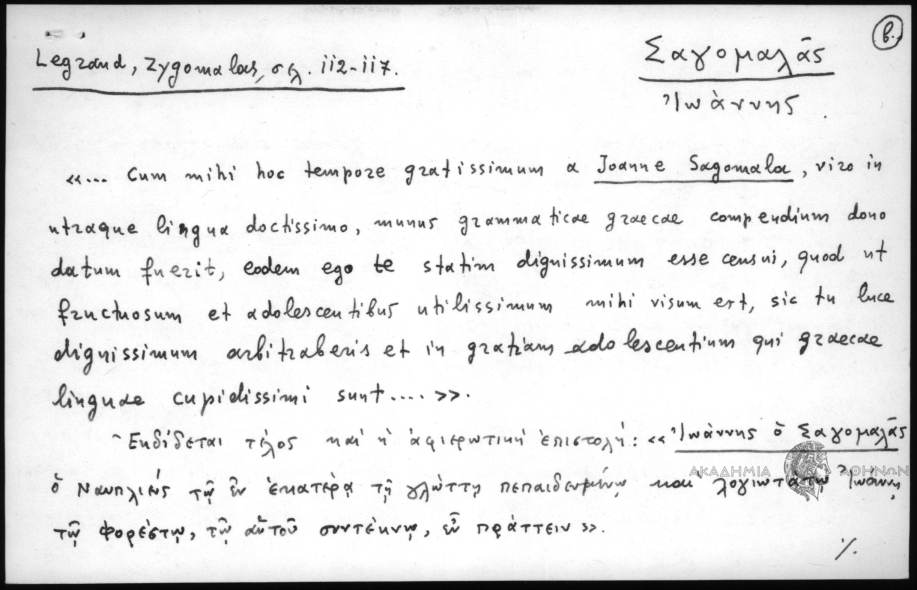 β.
Legrand, Zygomalas, σελ. 112-117.
Σαγομαλᾶς
Ἰωάννης
«... Cum mihi hoc tempore gratissimum a Joanne Sagomala, viro in
utraque lingua doctissimo, munus grammaticae graecae compendium dono
datum fuerit, eodem ego te statim dignissimum esse censui, quod ut
fructuosum et adolescentibus utilissimum mihi visum est, sic tu luce
dignissimum arbitraberis et in gratiam adolescentium qui graecae
linguae cupidissimi sunt.... ».
Ἐκδίδεται τέλος καὶ ἡ ἀφιερωτικὴ ἐπιστολή: «Ἰωάννης ὁ Σαγομαλᾶς
ΑΚΑΔΗΜΙΑ ΑΘΗΝΩΝ
ὁ Ναυπλιεὺς τῷ ἐν ἑκατέρᾳ τῇ γλώττῃ πεπαιδευμένῳ καὶ λογιωτάτῳ Ἰωάννῃ
τῷ Φορέστῳ, τῷ αὑτοῦ συντέκνῳ, εὖ πράττειν».
%